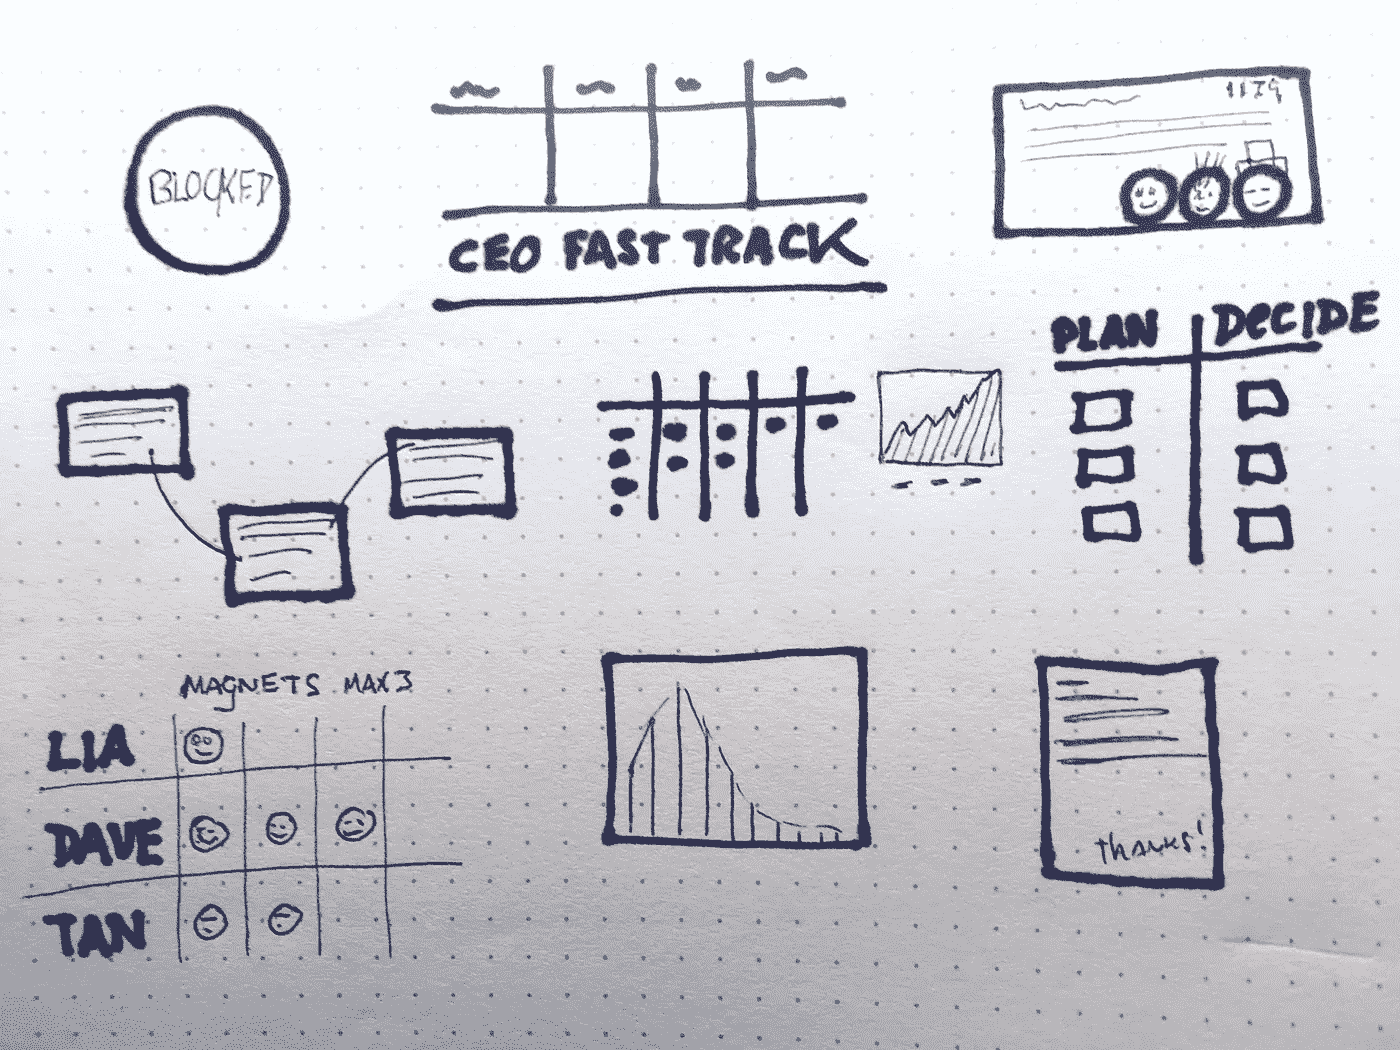 BLOCKED
CEO FAST TRACK
PLAN
DECIDE
MAGNETS MAX 3
LIA
DAVE
TAN
thanks!